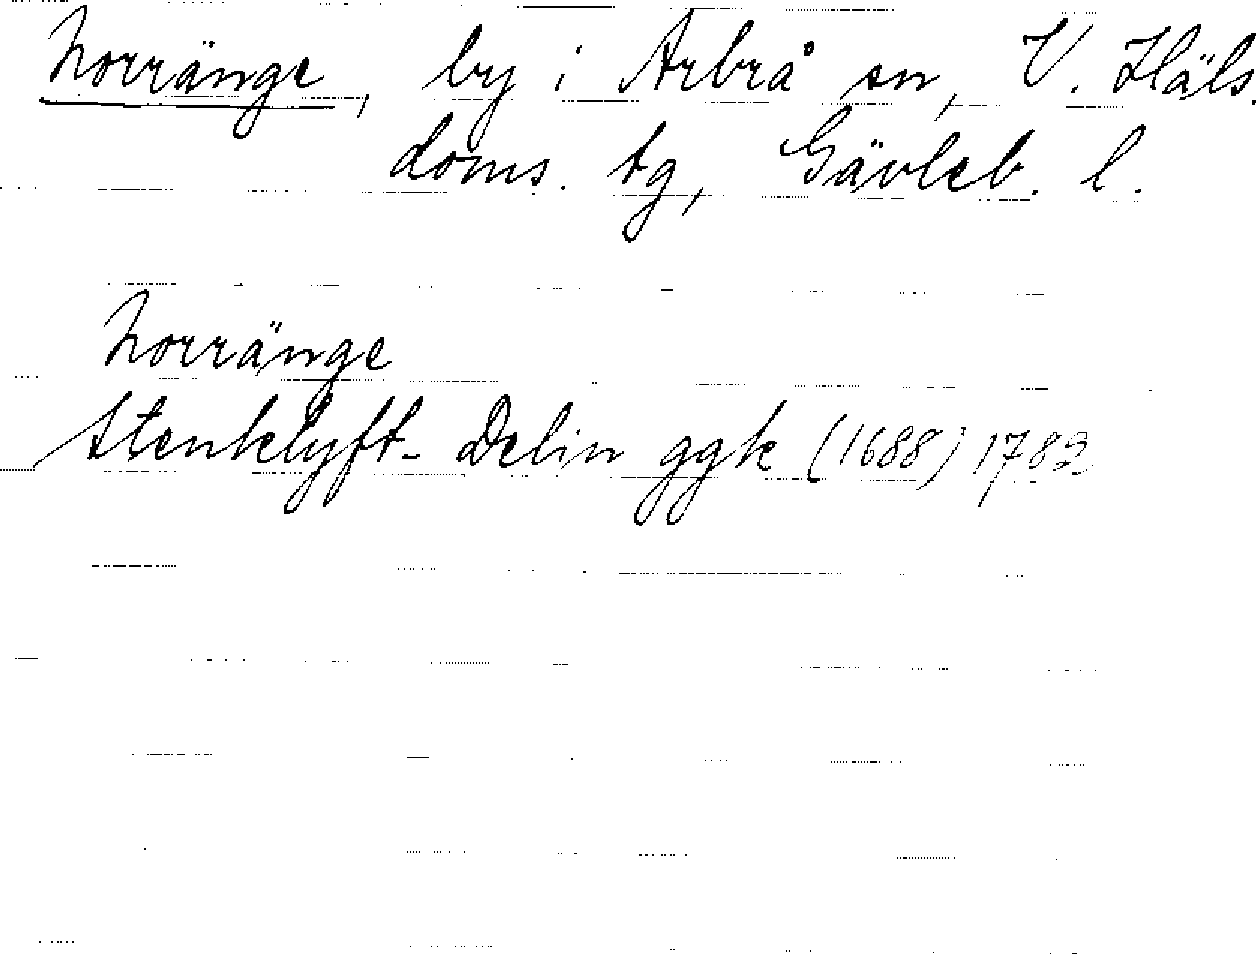 Norränge, by i Arbrå sn, V. Häls.
doms. tg, Gävleb. l.
Norränge
Stenklyft- Delin ggk (1688) 1783